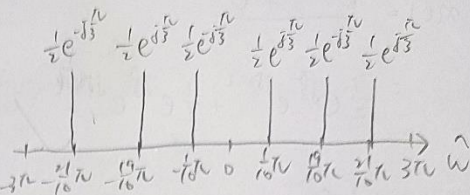 ½e^{-j\frac{π}{3}} ½e^{j\frac{π}{3}} ½e^{-j\frac{π}{3}} ½e^{j\frac{π}{3}} ½e^{-j\frac{π}{3}} ½e^{j\frac{π}{3}}
-3π -\frac{21}{10}π -\frac{19}{10}π -\frac{1}{10}π 0 \frac{1}{10}π \frac{19}{10}π \frac{21}{10}π 3π ŵ